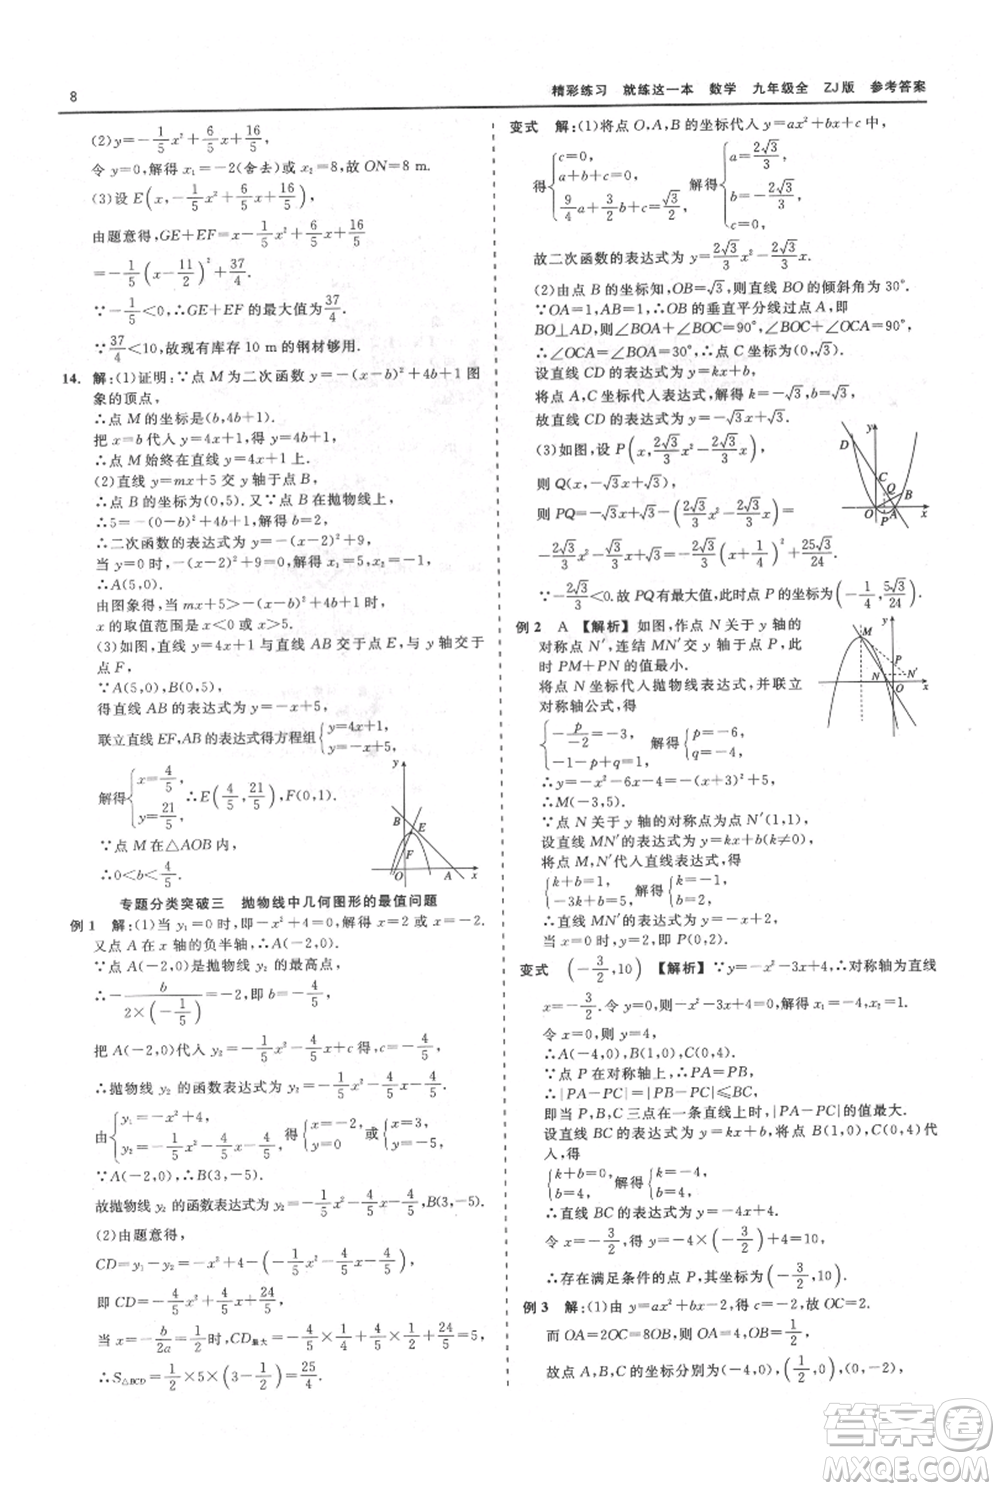 8
精彩练习 就练这一本 数学 九年级全 ZJ版 参考答案
(2)y=-1/5x²+6/5x+16/5.
令y=0,解得x₁=-2(舍去)或x₂=8,故ON=8 m.
(3)设E(x,-1/5x²+6/5x+16/5),
由题意得,GE+EF=x-1/5x²+6/5x+16/5
=-1/5(x-11/2)²+37/4.
∵-1/5<0,∴GE+EF的最大值为37/4.
∵37/4<10,故现有库存10 m的钢材够用.
14. 解:(1)证明:∵点M为二次函数y=-(x-b)²+4b+1图
象的顶点,
∴点M的坐标是(b,4b+1).
把x=b代入y=4x+1,得y=4b+1.
∴点M始终在直线y=4x+1上.
(2)∵直线y=mx+5交y轴于点B,
∴点B的坐标为(0,5).又∵点B在抛物线上,
∴5=-(0-b)²+4b+1.解得b=2,
∴二次函数的表达式为y=-(x-2)²+9,
当y=0时,-(x-2)²+9=0.解得x₁=5,x₂=-1,
∴A(5,0).
由图象得,当mx+5>-(x-b)²+4b+1时,
x的取值范围是x<0或x>5.
(3)如图,∵直线y=4x+1与直线AB交于点E,与y轴交于
点F,
∵A(5,0),B(0,5).
得直线AB的表达式为y=-x+5,
联立直线EF,AB的表达式得方程组{y=4x+1, y=-x+5.
解得{x=4/5, y=21/5. ∴E(4/5,21/5),F(0,1).
∵点M在△AOB内,
∴0<b<4/5.
y B E F O A x
专题分类突破三 抛物线中几何图形的最值问题
例1 解:(1)当y₁=0时,即-x-2=0,∴x=-2.
又点A在x轴的负半轴,∴A(-2,0).
∵点A(-2,0)是抛物线y₂的顶点,
∴-b/(2×(-1/5))=-2,即b=-4/5.
把A(-2,0)代入y₂=-1/5x²-4/5x+c得,c=-4/5.
∴抛物线y₂的函数表达式为y=-1/5x²-4/5x-4/5.
由{y₁=-x-2, y₂=-1/5x²-4/5x-4/5, 得{x=-2, y=0 或{x=3, y=-5.
∵A(-2,0),∴B(3,-5).
故抛物线y₂的函数表达式为y=-1/5x²-4/5x-4/5,B(3,-5).
(2)由题意得,
CD=y₃-y₂=-1/5x²-4/5x+24/5-(-x-2),
即CD=-1/5x²+1/5x+34/5.
当x=-b/2a=1/2时,CD最大=
∴S△BCD=
变式 解:(1)将点O,A,B的坐标代入y=ax²+bx+c中,
得{c=0, a+b+c=0, 9/4a+3/2b+c=√3/2. 解得{a=2√3/3, b=-2√3/3, c=0.
故二次函数的表达式为y=2√3/3x²-2√3/3x.
(2)由点B的坐标知,直线BO的倾斜角为30°.
∵OA=1,AB=1,∴OB的垂直平分线过点A,即
BO⊥AD,则∠BOA+∠BOC=90°,∠BOA+∠OAC=90°,
∴∠OCA=∠BOC=60°,故点C坐标为(0,√3).
设直线CD的表达式为y=kx+b,
将点A,C的坐标代入,解得k=-√3,b=√3.
故直线CD的表达式为y=-√3x+√3.
(3)如图,设P(x,2√3/3x²-2√3/3x),
则Q(x,-√3x+√3).
则PQ=-√3x+√3-(2√3/3x²-2√3/3x)=
-2√3/3x²-√3/3x+√3=-2√3/3(x+1/4)²+25√3/24.
∵-2√3/3<0.故PQ有最大值,此时点P(-1/4,5√3/24).
y D C Q B O P A x
例2 A 【解析】如图,作点N关于y轴的
对称点N′,连结MN′交y轴于点P,此
时PM+PN的值最小.
将点N坐标代入抛物线表达式,并联立
对称轴公式,得
{-p/-2=-3, -1-p+q=1, 解得{p=-6, q=-4.
∴y=-x²-6x-4=-(x+3)²+5.
∴M(-3,5).
∵点N关于y轴的对称点为点N′(1,1),
设MN′的表达式为y=kx+b(k≠0),
将点M,N′代入直线表达式,得
{k+b=1, -3k+b=5, 解得{k=-1, b=2,
∴MN′的表达式为y=-x+2.
令x=0,则y=2,即P(0,2).
M y P N N′ O x
变式 (-3/2,10) 【解析】∵y=-x²-3x+4,∴对称轴为直线
x=-3/2.令y=0,则-x²-3x+4=0,解得x₁=-4,x₂=1.
令x=0,则y=4.
∴A(-4,0),B(1,0),C(0,4).
∵点P在对称轴上,∴PA=PB.
∴|PA-PC|=|PB-PC|≤BC,
即当P,B,C三点在一条直线上时,|PA-PC|的值最大.
设直线BC的表达式为y=kx+b,将点B(1,0),C(0,4)代
入,得
{k+b=0, b=4, 解得{k=-4, b=4,
∴直线BC的表达式为y=-4x+4.
令x=-3/2,则y=-4×(-3/2)+4=10.
∴存在满足条件的点P,其坐标为(-3/2,10).
例3 解:(1)由y=ax²+bx-2,得c=-2,故OC=2.
而OA=2OC=8OB,则OA=4,OB=1/2.
故点A,B,C的坐标分别为(-4,0),(1/2,0),(0,-2).
答案圈
MXQE.COM